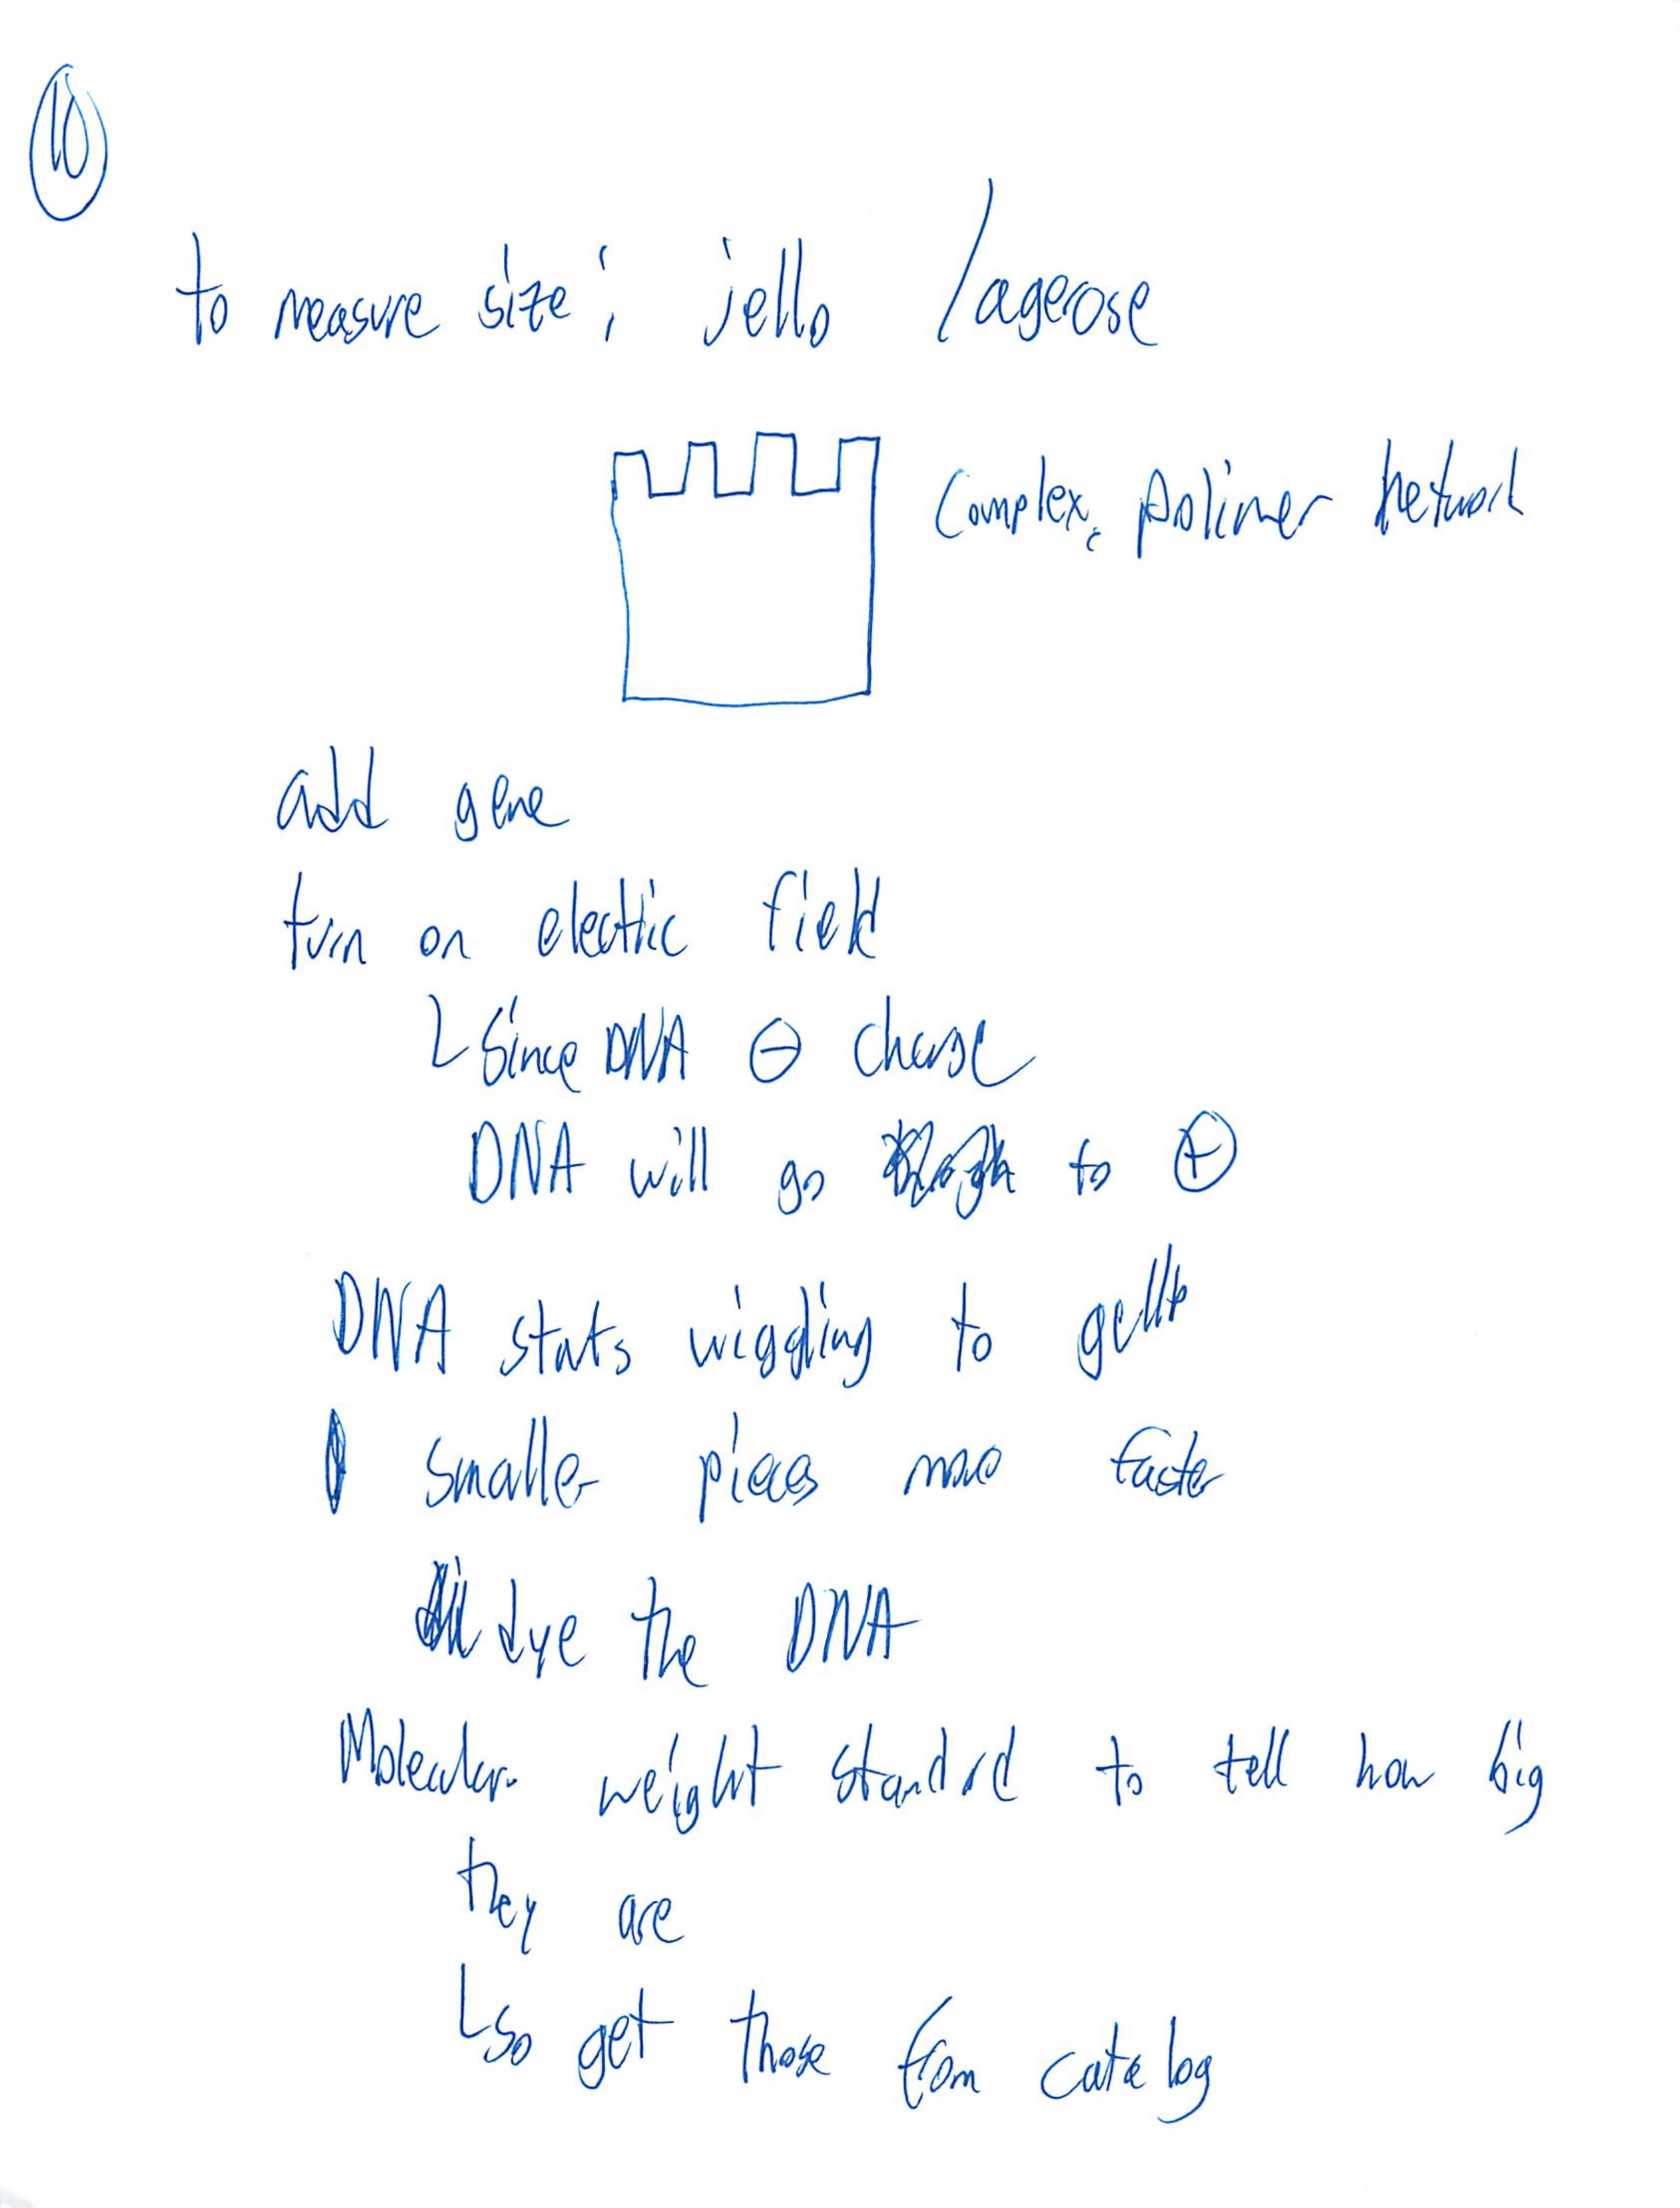 10
to measure size; jello / agerose
Complex, polimer network
add gene
turn on electric field
Since DNA ⊖ charge
DNA will go to ⊕
DNA starts wiggling to
smaller pieces move faster
dye the DNA
Molecular weight standrd to tell how big
they are
so get those from catalog